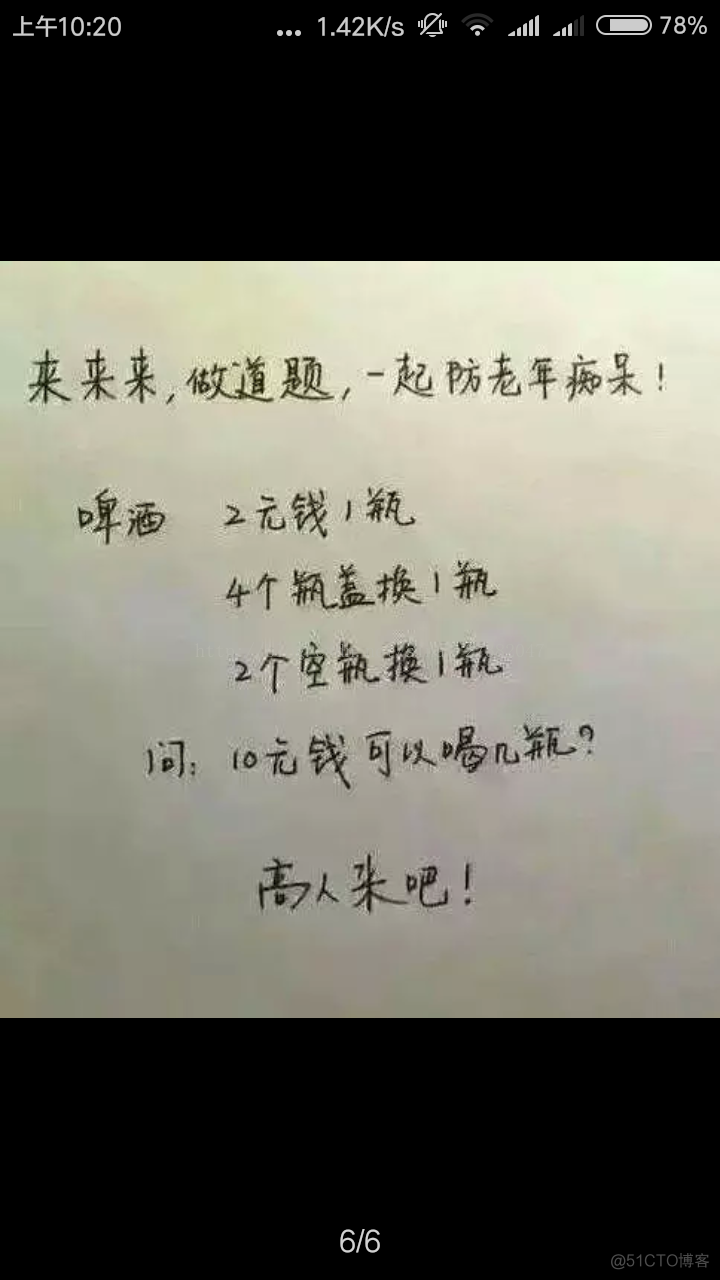 上午10:20 ... 1.42K/s 78%
来来来,做道题,一起防老年痴呆!
啤酒 2元钱1瓶
4个瓶盖换1瓶
2个空瓶换1瓶
问: 10元钱可以喝几瓶?
高人来吧!
6/6
@51CTO博客